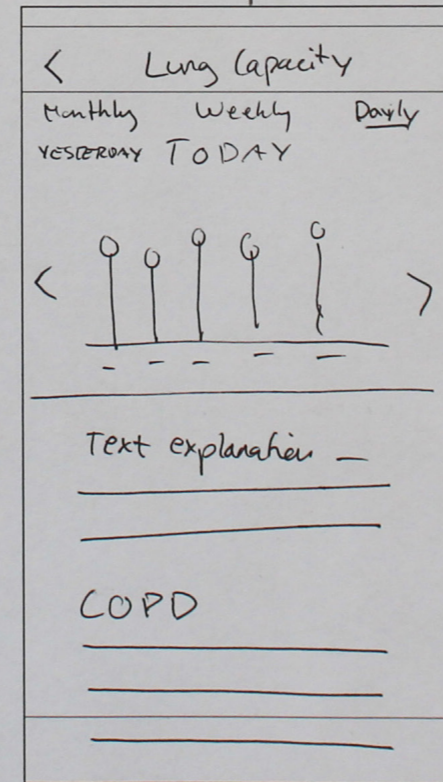 < Lung Capacity
Monthly Weekly Dayly
YESTERDAY TODAY
< >
Text explanation
COPD